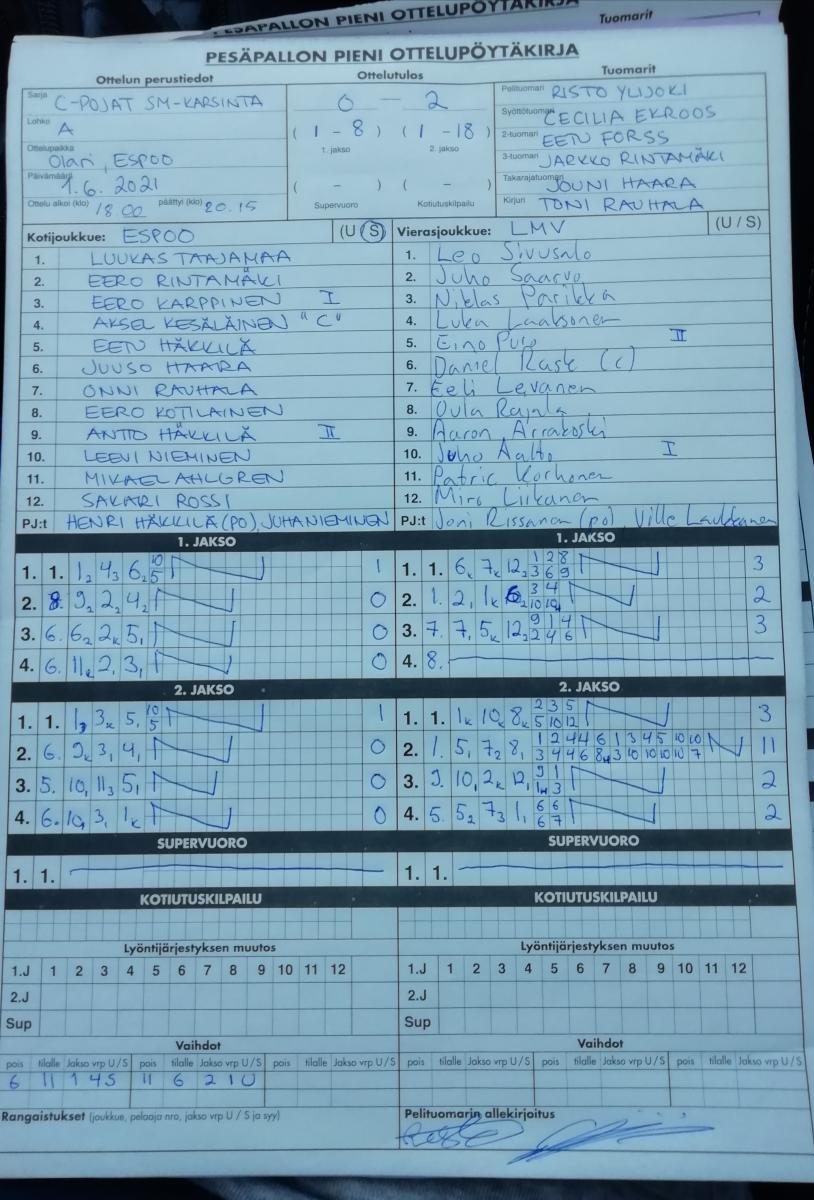 PESÄPALLON PIENI OTTELUPÖYTÄKIRJA
Tuomarit
PESÄPALLON PIENI OTTELUPÖYTÄKIRJA
Ottelun perustiedot
Ottelutulos
Tuomarit
Sarja C-POJAT SM-KARSINTA
Lohko A
Ottelupaikka Olari, ESPOO
Päivämäärä 1.6. 2021
Ottelu alkoi (klo) 18.00 päättyi (klo) 20.15
0 - 2
(1 - 8) (1 - 18)
1. jakso 2. jakso
( - ) ( - )
Supervuoro Kotiutuskilpailu
Pelituomari RISTO YLIJOKI
Syöttötuomari CECILIA EKROOS
2-tuomari EETU FORSS
3-tuomari JARKKO RINTAMÄKI
Takarajatuomari JOUNI HAARA
Kirjuri TONI RAUHALA
Kotijoukkue: ESPOO (U/S)
1. LUUKAS TAAJAMAA
2. EERO RINTAMÄKI
3. EERO KARPPINEN I
4. AKSEL KESÄLÄINEN "C"
5. EETU HÄKKILÄ
6. JUUSO HAARA
7. ONNI RAUHALA
8. EERO KOTILAINEN
9. ANTTO HÄKKILÄ II
10. LEEVI NIEMINEN
11. MIKAEL AHLGREN
12. SAKARI ROSSI
PJ:t HENRI HÄKKILÄ (PO), JUHA NIEMINEN
Vierasjoukkue: LMV (U/S)
1. Leo Sivusalo
2. Juho Saarvo
3. Niklas Parikka
4. Luka Laaksonen
5. Eino II
6. Daniel Rask (c)
7. Eeli Levanen
8. Oula Rajala
9. Aaron Arrakoski
10. Juho Aalto I
11. Patric Korhonen
12. Miro Liikanen
PJ:t Joni Rissanen (po), Ville Laukkanen
1. JAKSO
1. 1. 1₂ 4₃ 6₂ 10 5 1
2. 8. 9₂ 2₂ 4₂ 0
3. 6. 6₂ 2ₖ 5₁ 0
4. 6. 11ₖ 2₁ 3₁ 0
1. JAKSO
1. 1. 6ₖ 7ₖ 12₂ 1 2 8 3
3 6 9
2. 1. 2₁ 1ₖ 6₂ 3 4 2
10 10
3. 7. 7₁ 5ₖ 12₂ 9 1 4 3
2 4 6
4. 8.
2. JAKSO
1. 1. 1₃ 3ₖ 5₁ 10 5 1
2. 6. 9ₖ 3₁ 4₁ 0
3. 5. 10₁ 11₃ 5₁ 0
4. 6. 10₁ 3₁ 1ₖ 0
2. JAKSO
1. 1. 1ₖ 10ₖ 8ₖ 2 3 5 3
5 10 12
2. 1. 5₁ 7₂ 8₁ 1 2 4 4 6 1 3 4 5 10 10 11
3 4 4 6 8 3 10 10 10 10 7
3. 9. 10₁ 2ₖ 12₁ 9 1 2
3
4. 5. 5₂ 7₃ 1₁ 6 6 2
6 7
SUPERVUORO
1. 1.
SUPERVUORO
1. 1.
KOTIUTUSKILPAILU
KOTIUTUSKILPAILU
Lyöntijärjestyksen muutos
1.J 1 2 3 4 5 6 7 8 9 10 11 12
2.J
Sup
Lyöntijärjestyksen muutos
1.J 1 2 3 4 5 6 7 8 9 10 11 12
2.J
Sup
Vaihdot
pois tilalle Jakso vrp U/S pois tilalle Jakso vrp U/S pois tilalle Jakso vrp U/S
6 11 1 4S 11 6 2 1U
Vaihdot
pois tilalle Jakso vrp U/S pois tilalle Jakso vrp U/S pois tilalle Jakso vrp U/S
Rangaistukset (joukkue, pelaaja nro, jakso vrp U / S ja syy)
Pelituomarin allekirjoitus